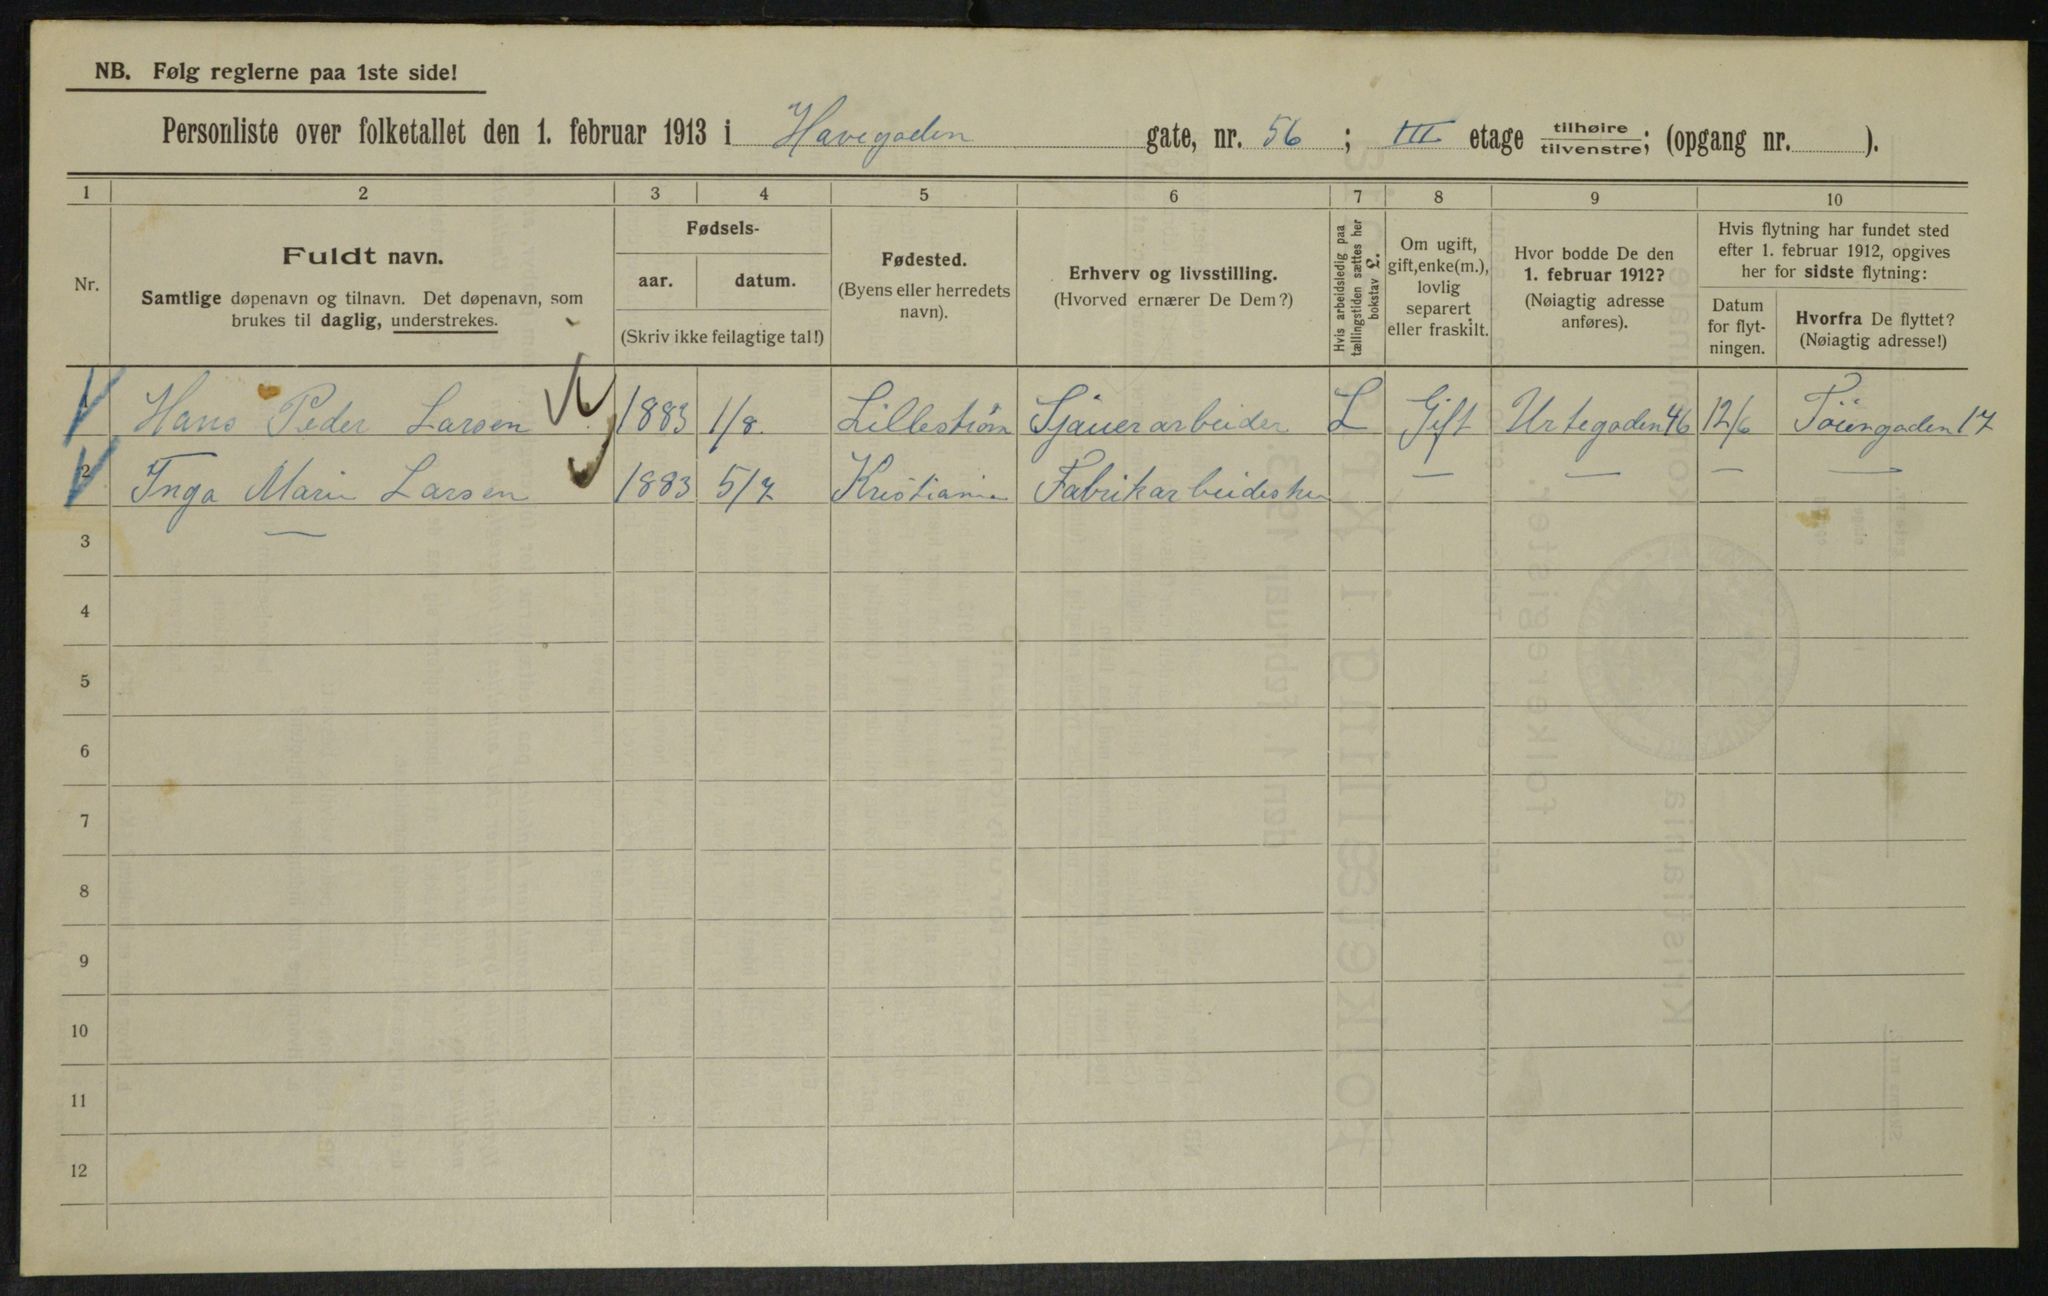 NB. Følg reglerne paa 1ste side!
Personliste over folketallet den 1. februar 1913 i Havegaden gate, nr. 56 ; III etage tilhøire tilvenstre; (opgang nr. ).
1 2 3 4 5 6 7 8 9 10
Nr.
Fuldt navn.
Samtlige døpenavn og tilnavn. Det døpenavn, som
brukes til daglig, understrekes.
Fødsels-
aar. datum.
(Skriv ikke feilagtige tal!)
Fødested.
(Byens eller herredets
navn).
Erhverv og livsstilling.
(Hvorved ernærer De Dem?)
Hvis arbeidsledig paa
tællingstiden sættes her
bokstav L.
Om ugift,
gift, enke(m.),
lovlig
separert
eller fraskilt.
Hvor bodde De den
1. februar 1912?
(Nøiagtig adresse
anføres).
Hvis flytning har fundet sted
efter 1. februar 1912, opgives
her for sidste flytning:
Datum
for flyt-
ningen.
Hvorfra De flyttet?
(Nøiagtig adresse!)
1 Hans Peder Larsen 1883 1/8 Lillestrøm Sjauerarbeider L Gift Urtegaden 46 12/6 Töiengaden 17
2 Inga Marie Larsen 1883 5/7 Kristiania Fabrikarbeiderske — — — —
3 —
4
5
6
7
8
9
10
11
12